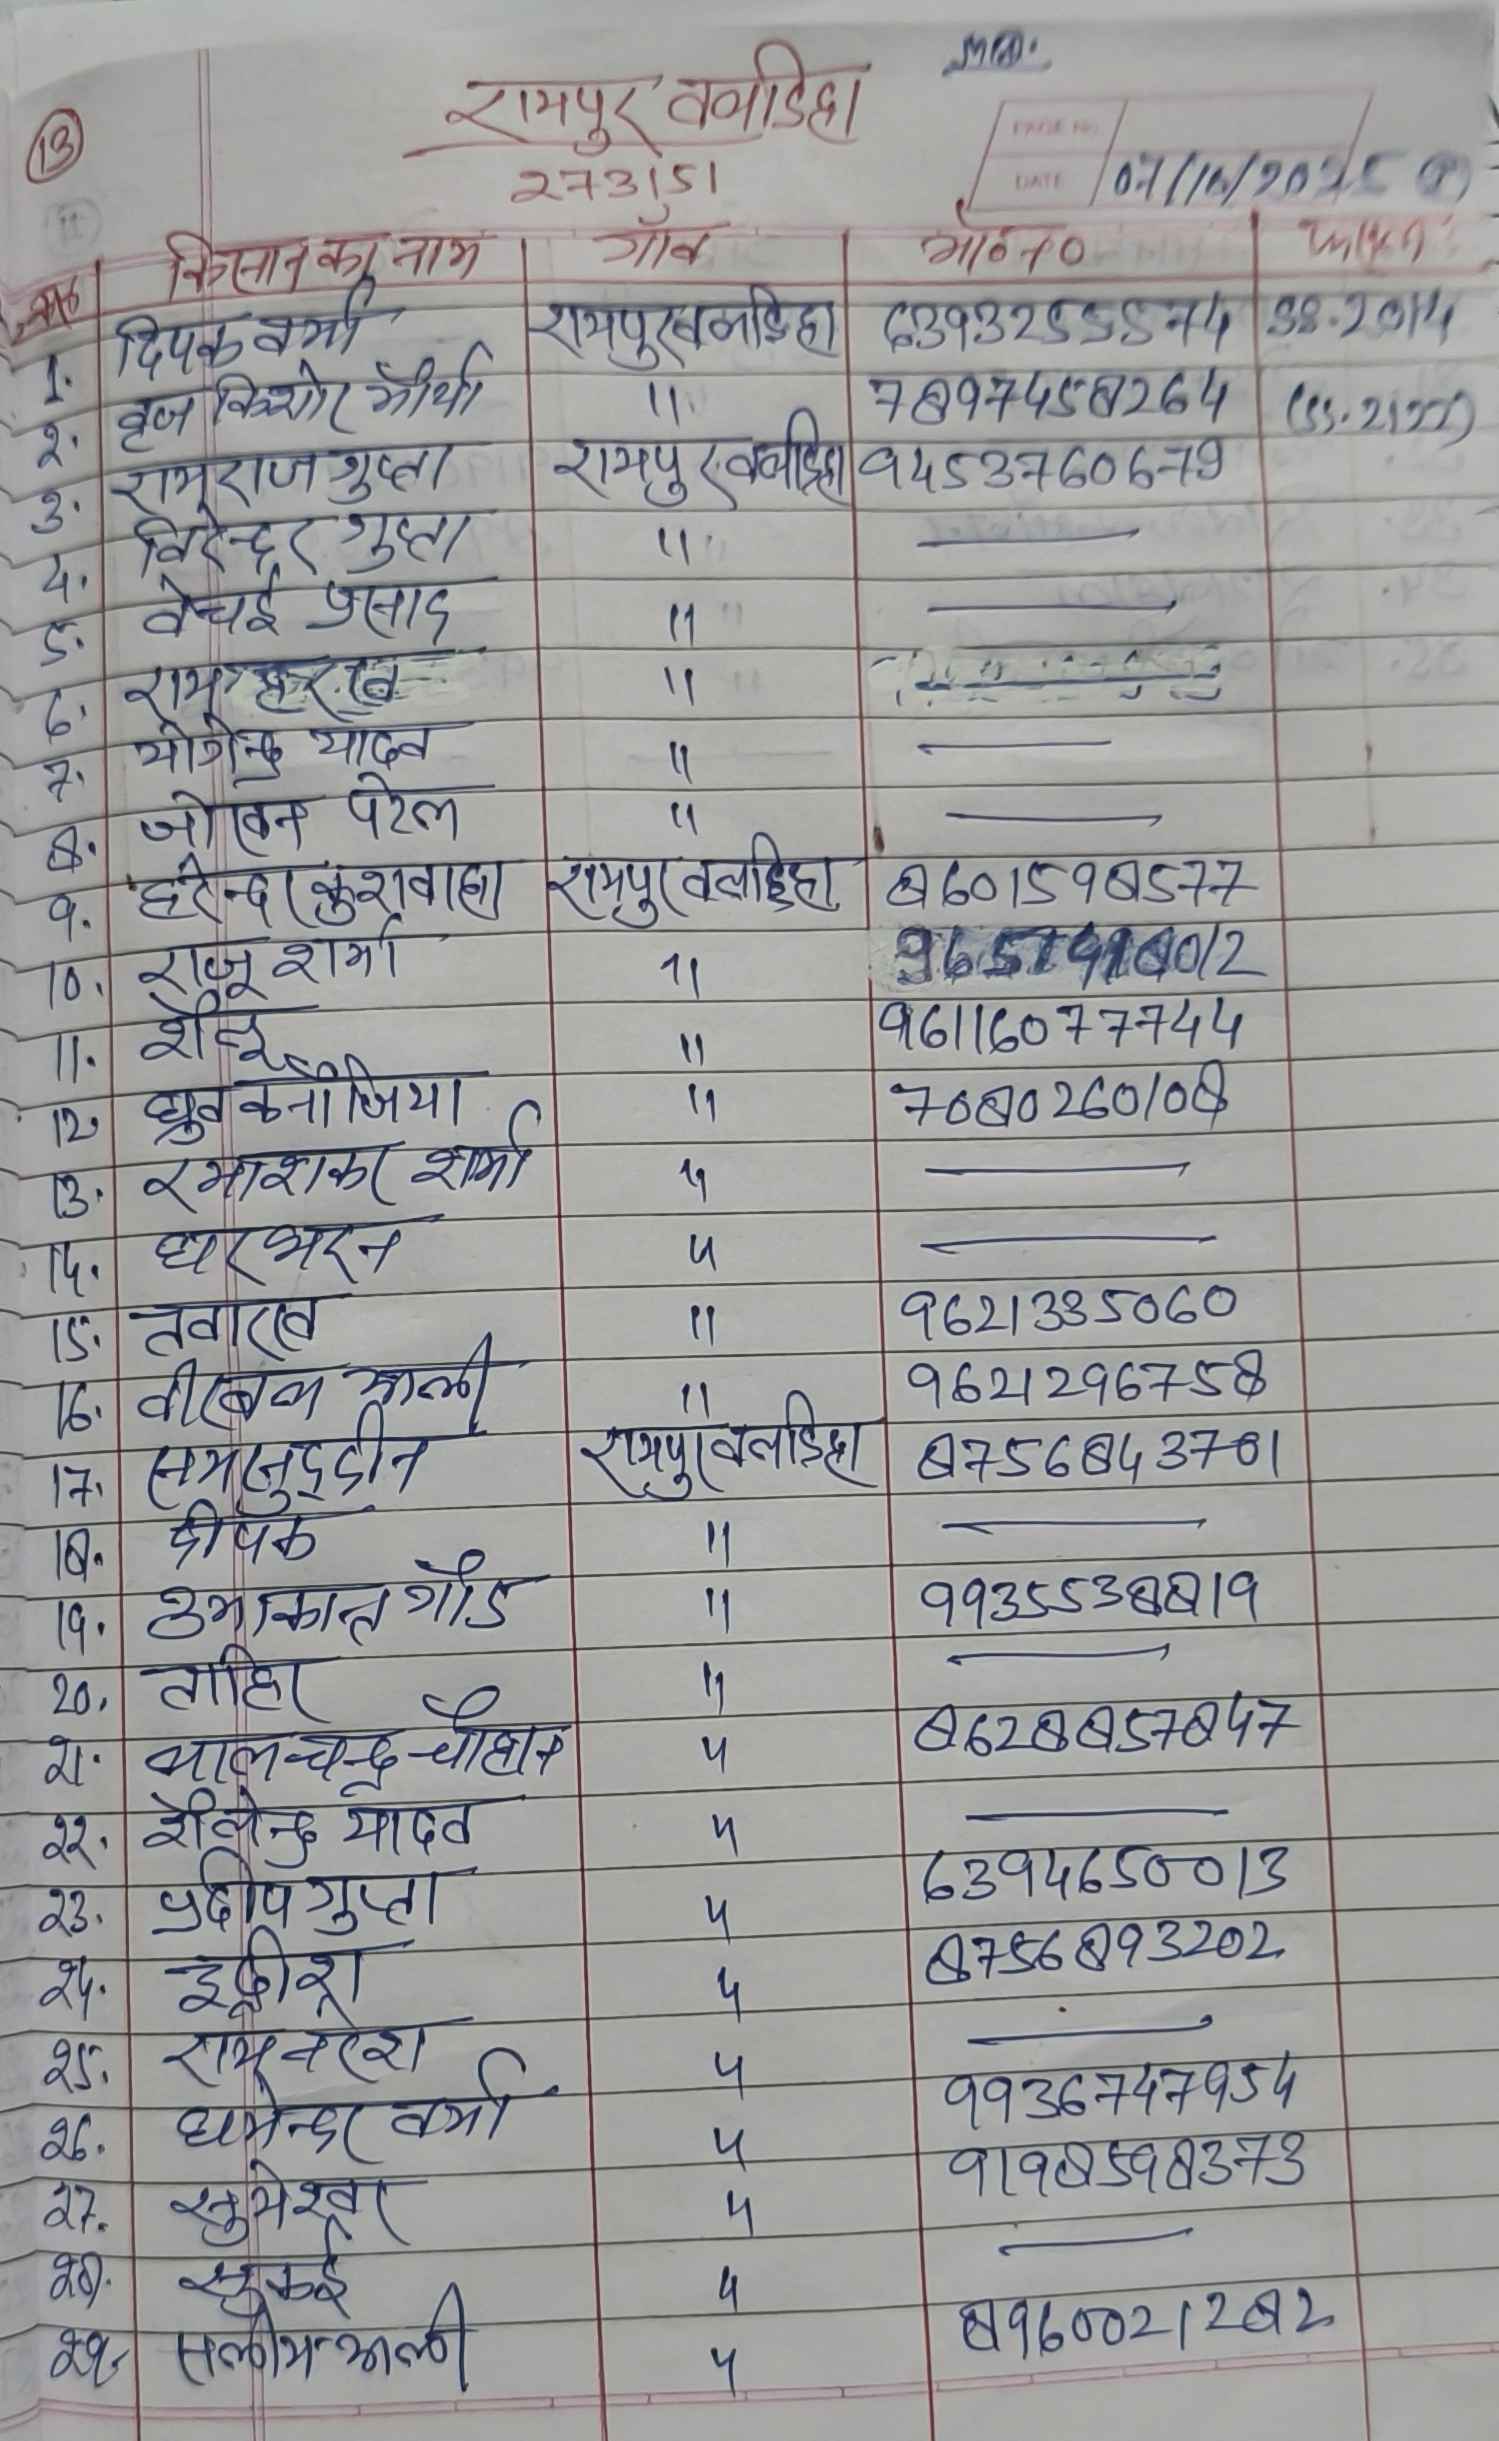 13
रामपुर बलडिहा
273151
PAGE NO.
DATE 07/10/2025
क्र० किसान का नाम गाँव मो०न०
1. दिपक वर्मा रामपुर बलडिहा 6393255574 SS.2014
2. बृज किशोर मौर्या " 7897458264 (SS.2122)
3. रामराज गुप्ता रामपुर बलडिहा 9453760679
4. विरेन्द्र गुप्ता " —
5. बेचई प्रसाद " —
6. राम हरख "
7. योगेन्द्र यादव " —
8. जोखन पटेल " —
9. हरेन्द्र कुशवाहा रामपुर बलडिहा 8601598577
10. राजू शर्मा "
11. " 96116077744
12. ध्रुव कनौजिया " 7080260108
13. रमाशंकर शर्मा " —
14. घरभरन " —
15. तवारख " 9621335060
16. अली " 9621296758
17. समसुद्दीन रामपुर बलडिहा 8756843701
18. दीपक " —
19. उमाकान्त गौड " 9935538819
20. ताहिर " —
21. बालचन्द्र चौहान " 8628857847
22. शैलेन्द्र यादव " —
23. प्रदीप गुप्ता " 6394650013
24. इद्रीश " 8756893202
25. रामनरेश " —
26. धर्मेन्द्र वर्मा " 9936747954
27. सुमेश्वर " 9198598373
28. सुकई " —
29. सलीम अली " 8960021282